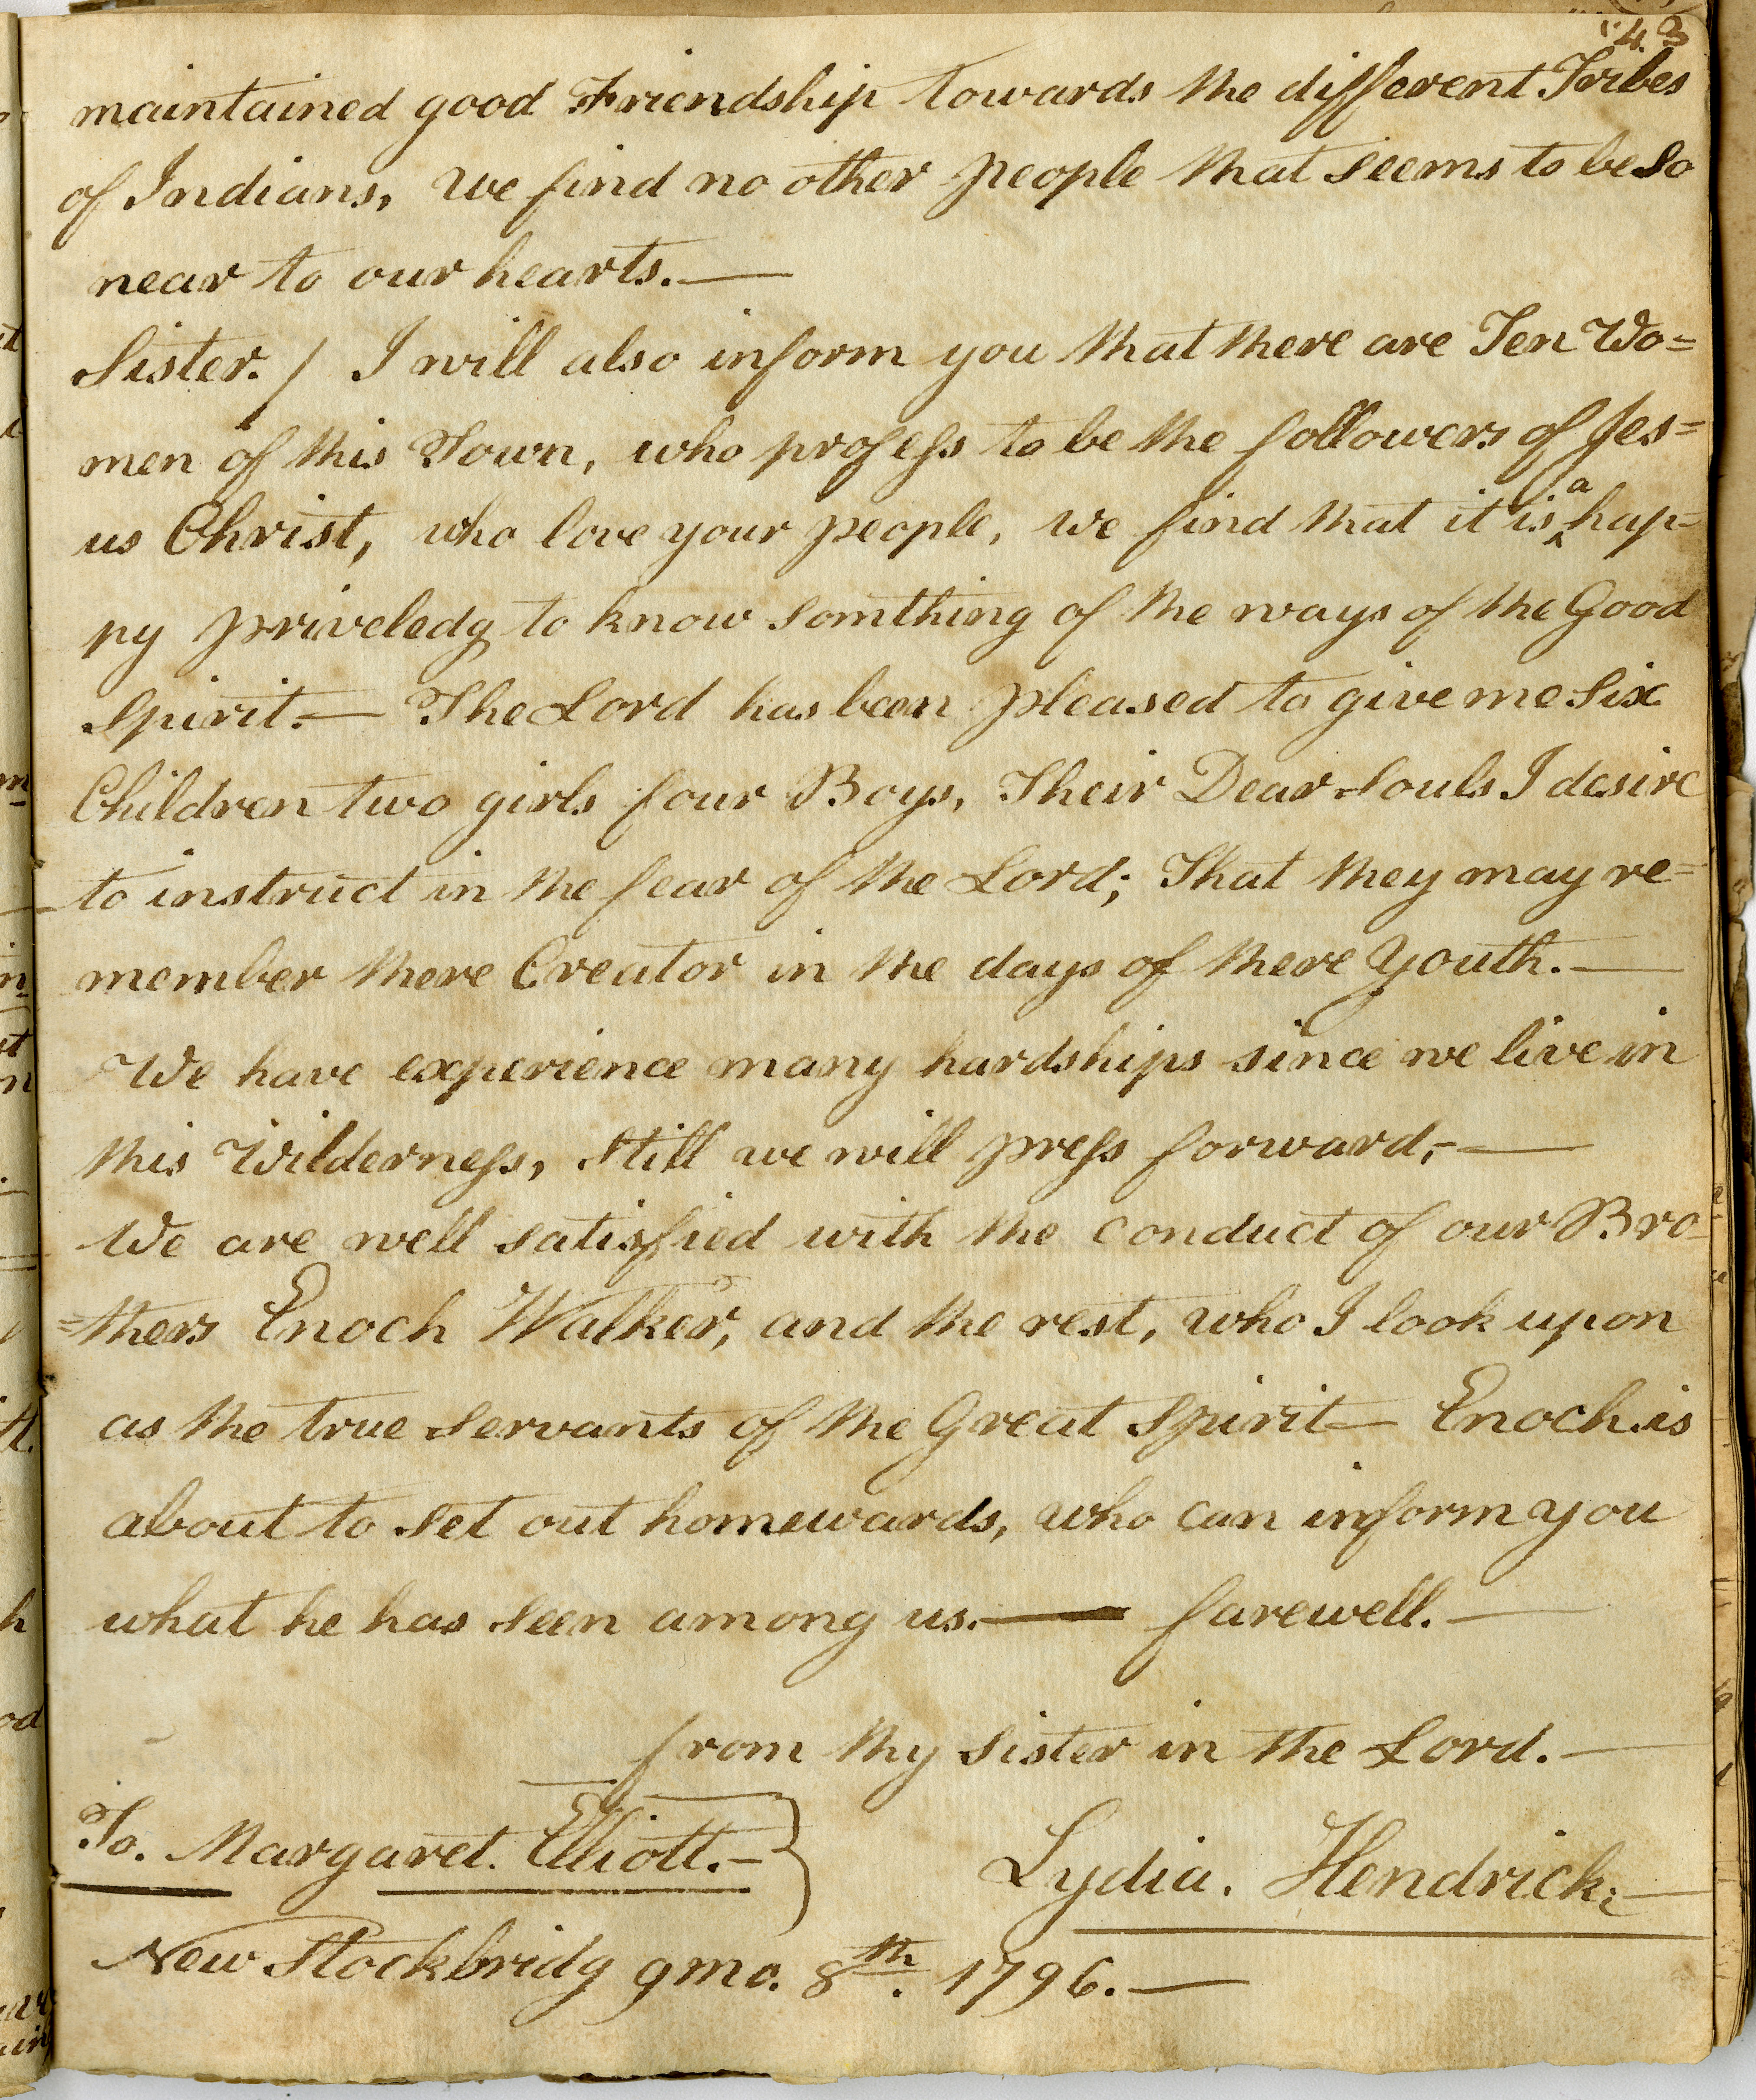 43
maintained good Friendship towards the different Tribes
of Indians, we find no other people that seems to be so
near to our hearts.—
Sister. / I will also inform you that there are Ten Wo=
men of this Town, who profess to be the followers of Jes=
us Christ, who love your people, we find that it is ^a hap=
py priveledg to know somthing of the ways of the Good
Spirit.— The Lord has been pleased to give me Six
Children two girls four Boys, Their Dear Souls I desire
to instruct in the fear of the Lord; That they may re=
member there Creator in the days of there Youth.—
We have experience many hardships since we live in
this Wilderness, Still we will press forward,—
We are well satisfied with the conduct of our Bro=
=thers Enoch Walker, and the rest, who I look upon
as the true Servants of the Great Spirit— Enoch is
about to set out homewards, who can inform you
what he has seen among us.— farewell.—
from thy sister in the Lord.—
To. Margaret. Elliott.—
Lydia. Hendrick.—
New Stockbridg 9mo. 8th. 1796.—